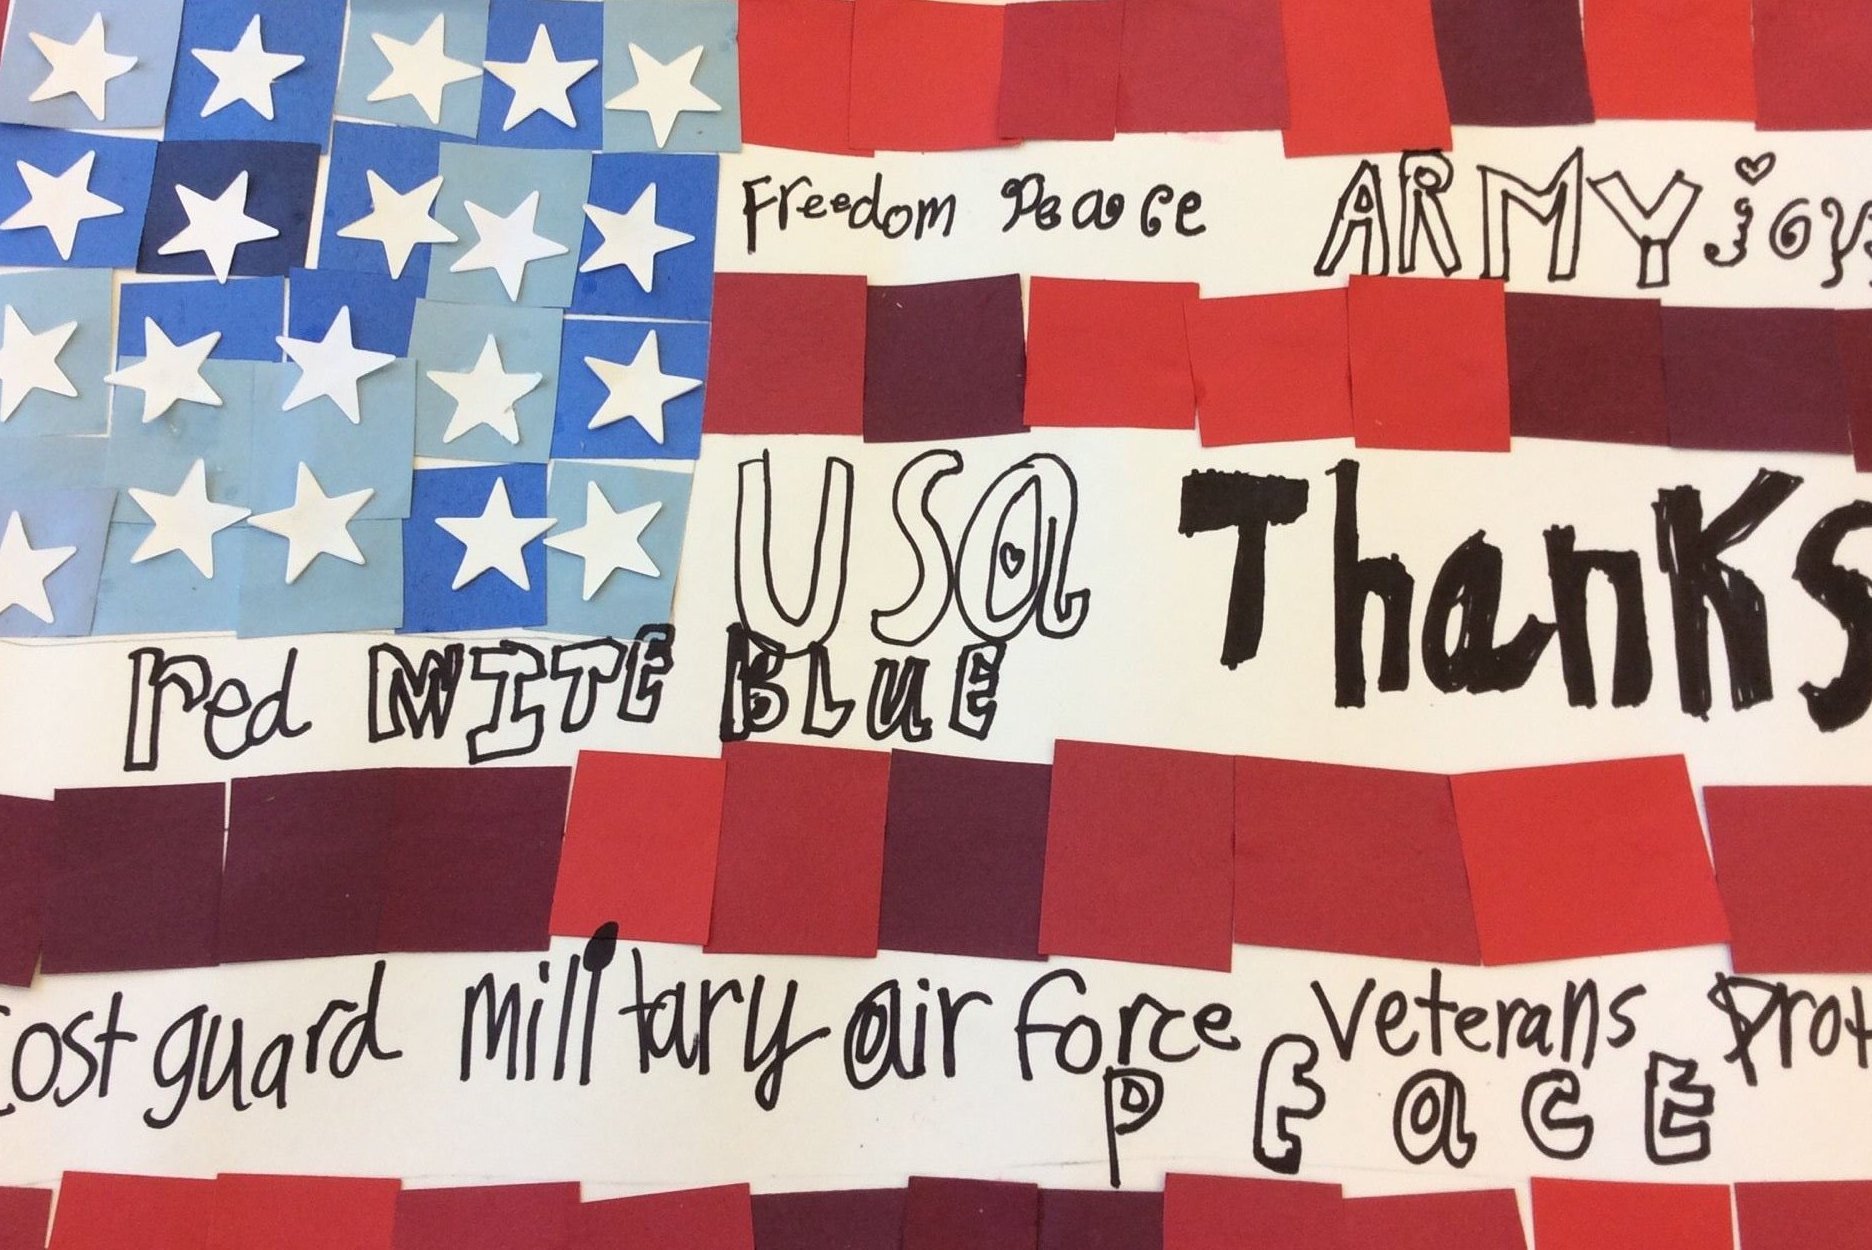 Freedom Peace ARMY joy
USA Thanks
red WITE BLUE
cost guard military air force veterans prot
PEaCE